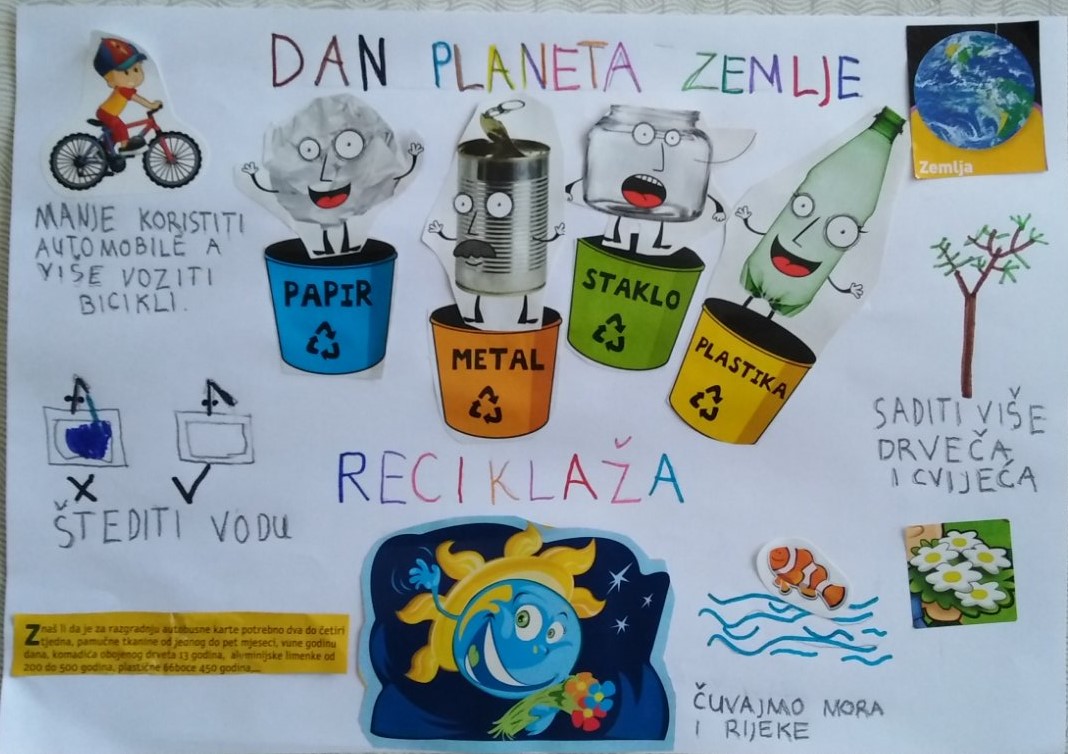 DAN PLANETA ZEMLJE
Zemlja
MANJE KORISTITI
AUTOMOBILE A
VIŠE VOZITI
BICIKLI.
PAPIR
METAL
STAKLO
PLASTIKA
SADITI VIŠE
DRVEČA
I CVIJEĆA
RECIKLAŽA
ŠTEDITI VODU
Znaš li da je za razgradnju autobusne karte potrebno dva do četiri
tjedna, pamučne tkanine od jednog do pet mjeseci, vune godinu
dana, komadića obojenog drveta 13 godina, aluminijske limenke od
200 do 500 godina, plastične boce 450 godina...
ČUVAJMO MORA
I RIJEKE